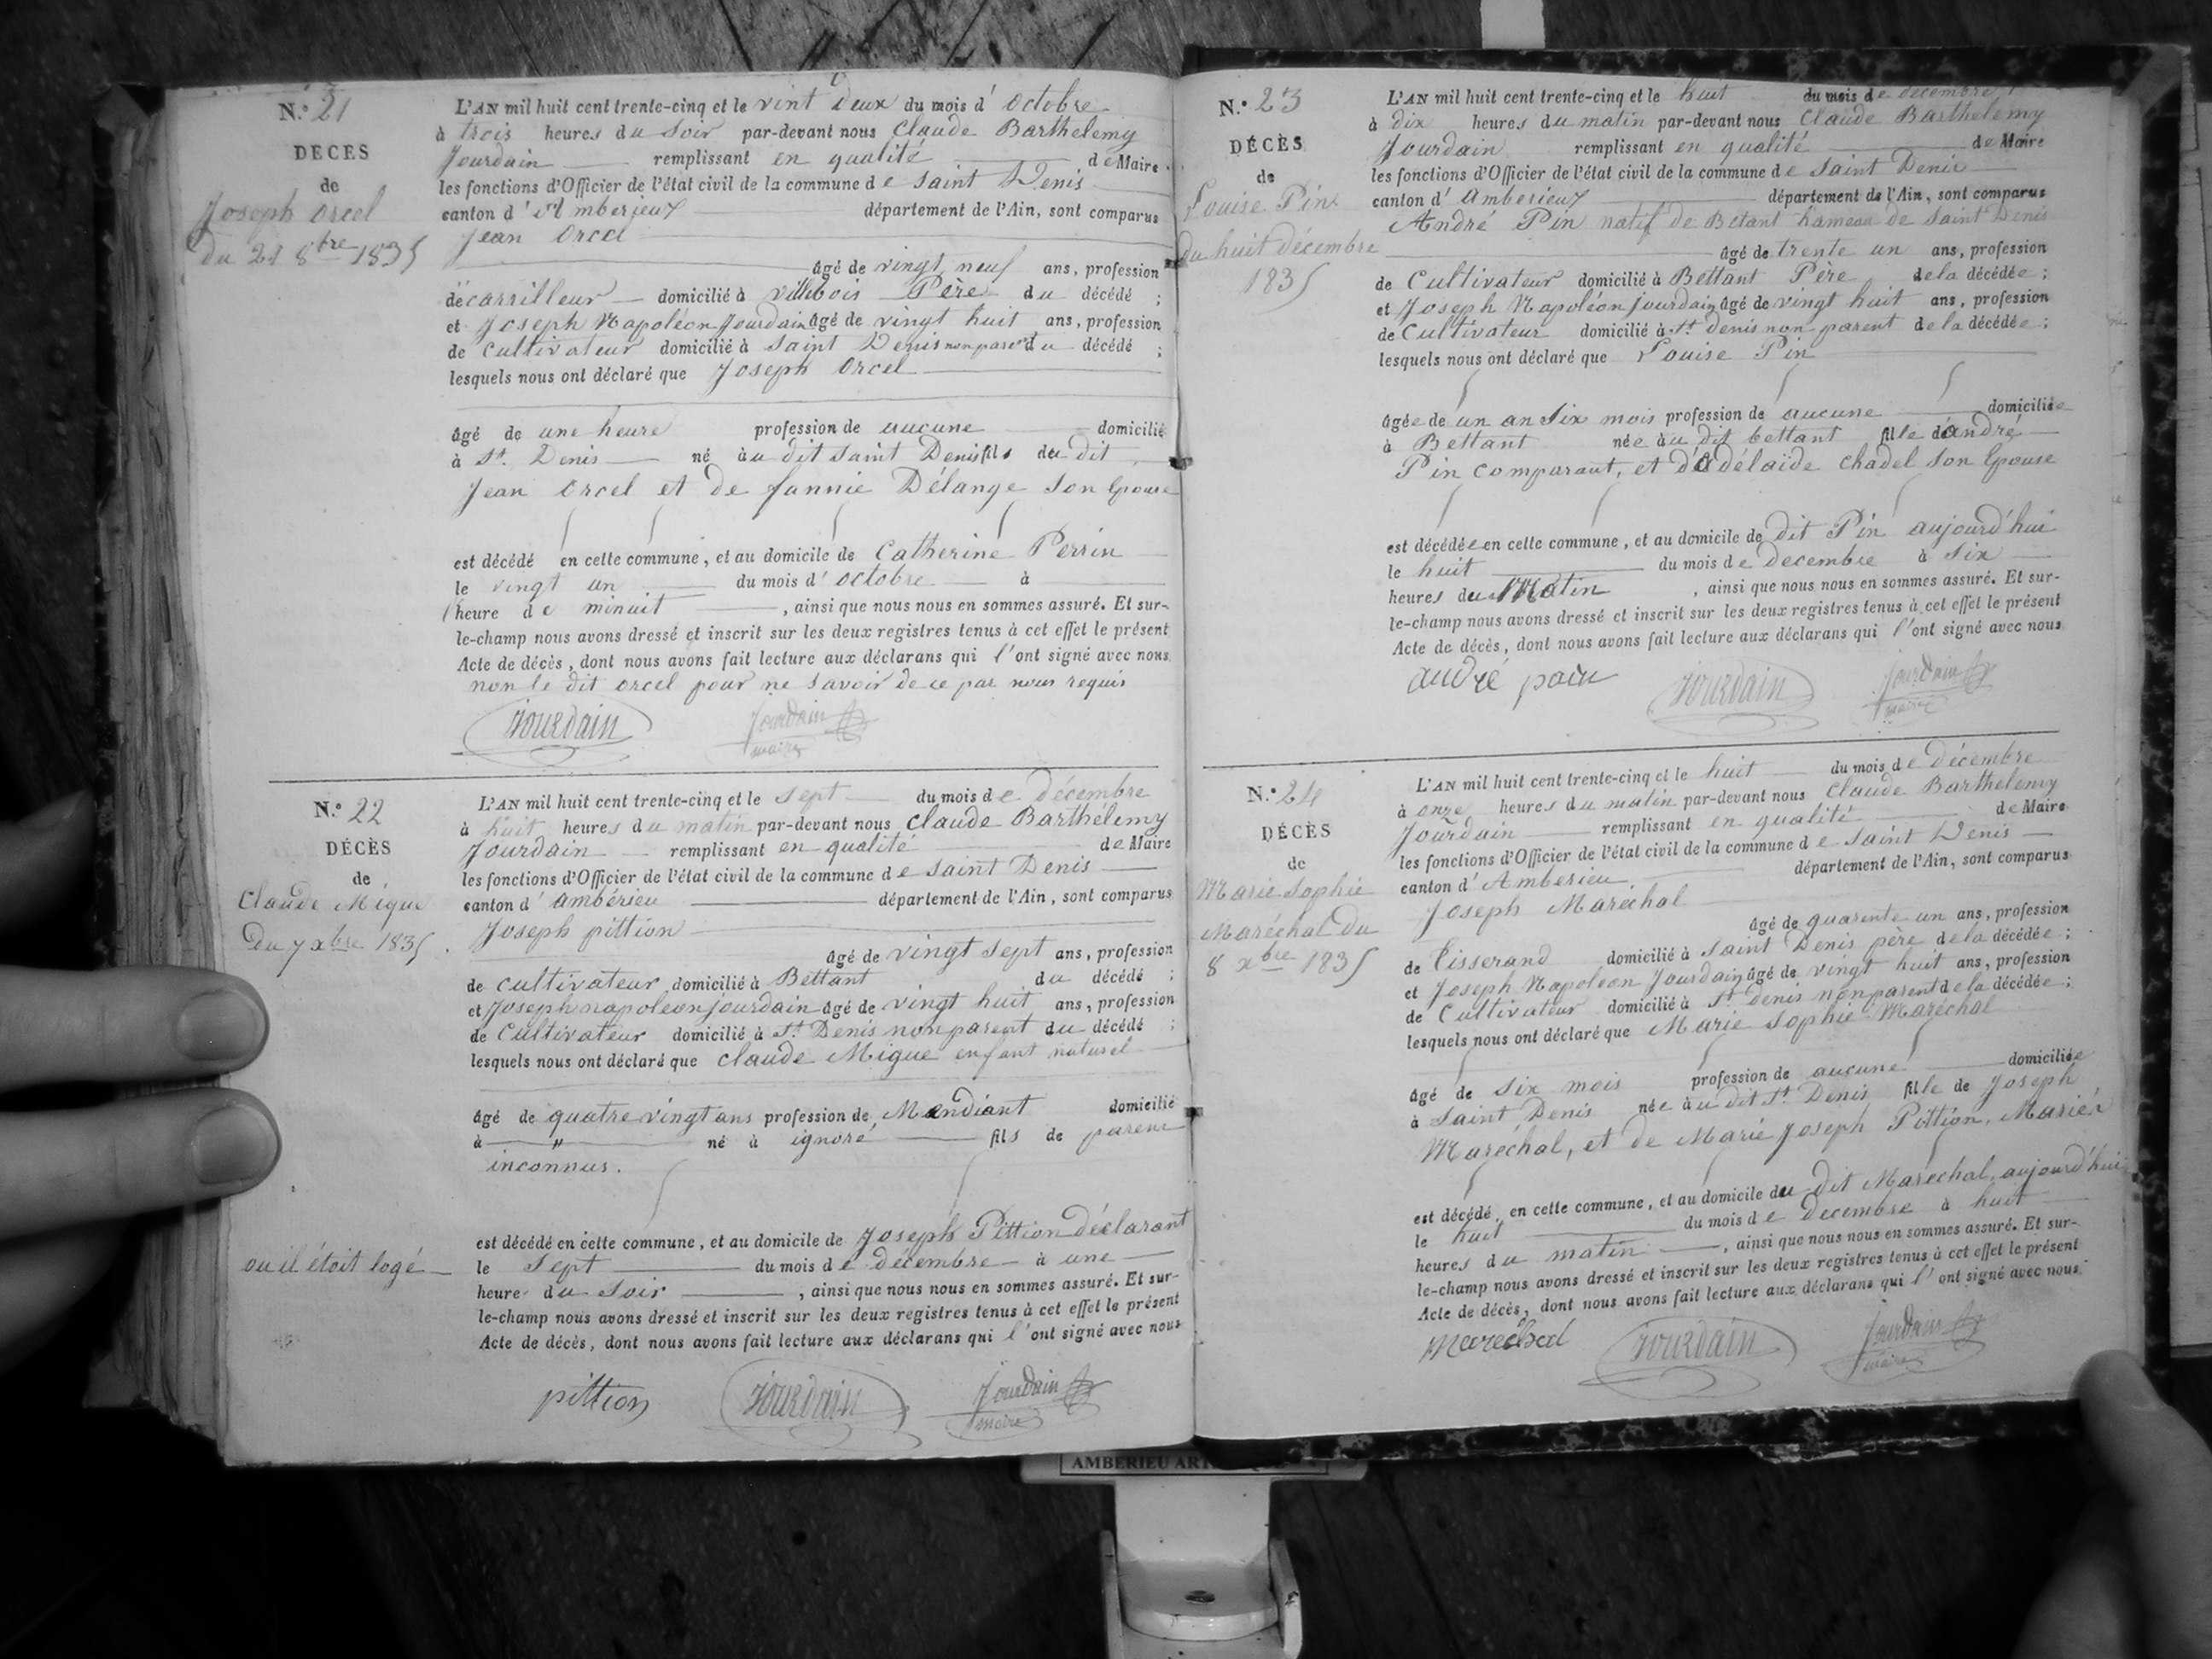 N.° 21
DECES
de
Joseph Orcel
du 21 8bre 1835
L'AN mil huit cent trente-cinq et le vint deux du mois d' Octobre
à trois heures du Soir par-devant nous Claude Barthelemy
Jourdain remplissant en qualité de Maire
les fonctions d'Officier de l'état civil de la commune de Saint Denis
canton d' Amberieux département de l'Ain, sont comparus
Jean Orcel
âgé de vingt neuf ans, profession
de carrilleur domicilié à villebois Père du décédé ;
et Joseph Napoléon Jourdain âgé de vingt huit ans, profession
de Cultivateur domicilié à Saint Denis non parent du décédé ;
lesquels nous ont déclaré que Joseph Orcel
âgé de une heure profession de aucune domicilié
à St. Denis né àu dit Saint Denis fils du dit
Jean Orcel et de fannie Délange Son Epouse
est décédé en cette commune, et au domicile de Catherine Perrin
le vingt un du mois d' Octobre à
heure de minuit , ainsi que nous nous en sommes assuré. Et sur-
le-champ nous avons dressé et inscrit sur les deux registres tenus à cet effet le présent
Acte de décès, dont nous avons fait lecture aux déclarans qui l'ont signé avec nous
non le dit orcel pour ne Savoir de ce par nous requis
Jourdain Jourdain
maire
N.° 22
DÉCÈS
de
Claude Migue
du 7 xbre 1835.
L'AN mil huit cent trente-cinq et le Sept du mois de Décembre
à huit heures du matin par-devant nous Claude Barthélemy
Jourdain remplissant en qualité de Maire
les fonctions d'Officier de l'état civil de la commune de Saint Denis
canton d' ambérieu département de l'Ain, sont comparus
Joseph pittion
âgé de vingt Sept ans, profession
de cultivateur domicilié à Bettant du décédé ;
et Joseph napoleon jourdain âgé de vingt huit ans, profession
de Cultivateur domicilié à St. Denis non parent du décédé ;
lesquels nous ont déclaré que Claude Migue enfant naturel
âgé de quatre vingt ans profession de Mendiant domicilié
à " né à ignoré fils de parens
inconnus.
est décédé en cette commune, et au domicile de Joseph Pittion déclarant
ou il étoit logé
le Sept du mois de décembre à une
heure du Soir , ainsi que nous nous en sommes assuré. Et sur-
le-champ nous avons dressé et inscrit sur les deux registres tenus à cet effet le présent
Acte de décès, dont nous avons fait lecture aux déclarans qui l'ont signé avec nous
pittion Jourdain Jourdain
maire
N.° 23
DÉCÈS
de
Louise Pin
du huit décembre
1835
L'AN mil huit cent trente-cinq et le huit du mois de décembre
à dix heures du matin par-devant nous Claude Barthelemy
Jourdain remplissant en qualité de Maire
les fonctions d'Officier de l'état civil de la commune de Saint Denis
canton d' Amberieux département de l'Ain, sont comparus
André Pin natif de Betant hameau de Saint Denis
âgé de trente un ans, profession
de Cultivateur domicilié à Bettant Père de la décédée ;
et Joseph Napoléon Jourdain âgé de vingt huit ans, profession
de Cultivateur domicilié à St. denis non parent de la décédée ;
lesquels nous ont déclaré que Louise Pin
âgée de un an Six mois profession de aucune domiciliée
à Bettant née àu dit bettant fille d'andré
Pin comparant, et d'adélaïde chadel son Epouse
est décédée en cette commune, et au domicile de dit Pin aujourd'hui
le huit du mois de decembre à Six
heures du Matin , ainsi que nous nous en sommes assuré. Et sur-
le-champ nous avons dressé et inscrit sur les deux registres tenus à cet effet le présent
Acte de décès, dont nous avons fait lecture aux déclarans qui l'ont signé avec nous
Jourdain Jourdain
maire
N.° 24
DÉCÈS
de
Marie Sophie
Maréchal du
8 xbre 1835
L'AN mil huit cent trente-cinq et le huit du mois de décembre
à onze heures du matin par-devant nous Claude Barthelemy
Jourdain remplissant en qualité de Maire
les fonctions d'Officier de l'état civil de la commune de Saint Denis
canton d' Amberieu département de l'Ain, sont comparus
Joseph Maréchal
âgé de quarente un ans, profession
de Tisserand domicilié à Saint Denis père de la décédée ;
et Joseph Napoleon Jourdain âgé de vingt huit ans, profession
de Cultivateur domicilié à St. denis non parent de la décédée ;
lesquels nous ont déclaré que Marie Sophie Maréchal
âgé de Six mois profession de aucune domiciliée
à Saint Denis née àu dit St. Denis fille de Joseph
Maréchal, et de Marie Joseph Pittion, Mariés
est décédé en cette commune, et au domicile du dit Marechal, aujourd'hui
le huit du mois de decembre à huit
heures du matin , ainsi que nous nous en sommes assuré. Et sur-
le-champ nous avons dressé et inscrit sur les deux registres tenus à cet effet le présent
Acte de décès, dont nous avons fait lecture aux déclarans qui l'ont signé avec nous.
Marechal Jourdain Jourdain
maire
AMBERIEU